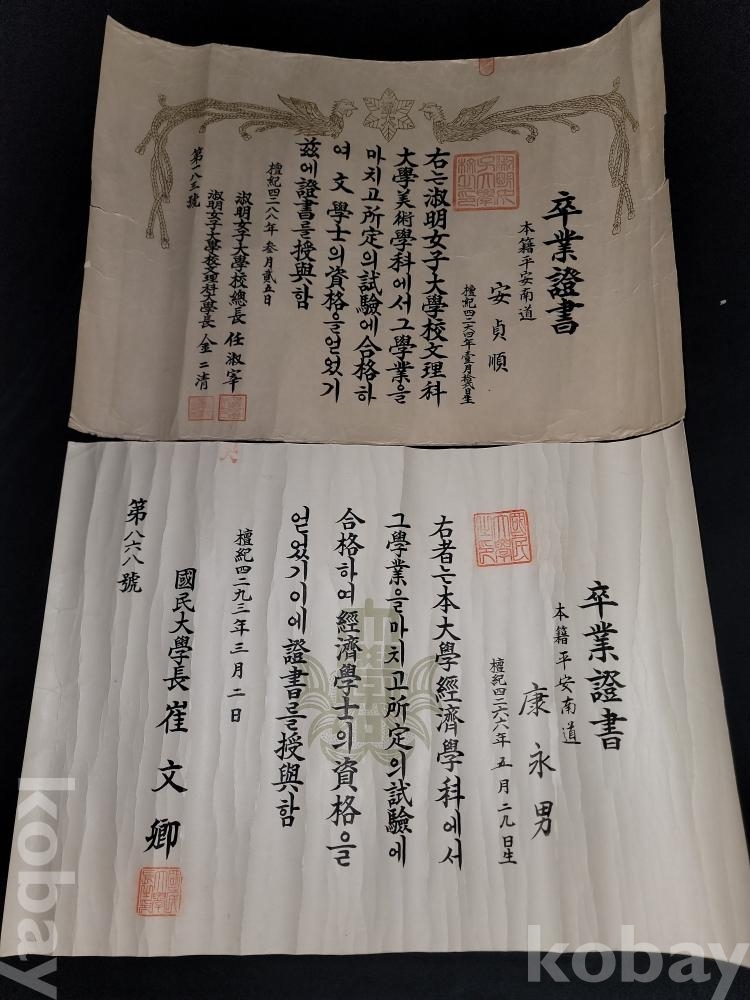 卒業證書
本籍平安南道
安貞順
檀紀四二六四年壹月拾貳日生
右는淑明女子大學校文理科
大學美術學科에서그學業을
마치고所定의試驗에合格하
여文學士의資格을얻었기
玆에證書를授與함
檀紀四二八八年叁月貳五日
淑明女子大學校總長任淑宰
淑明女子大學校文理科大學長金二清
第一八三號
卒業證書
本籍平安南道
康永男
檀紀四二六六年五月二九日生
右者는本大學經濟學科에서
그學業을마치고所定의試驗에
合格하여經濟學士의資格을
얻었기이에證書를授與함
檀紀四二九三年三月二日
國民大學長崔文卿
第八六八號
kobay
kobay